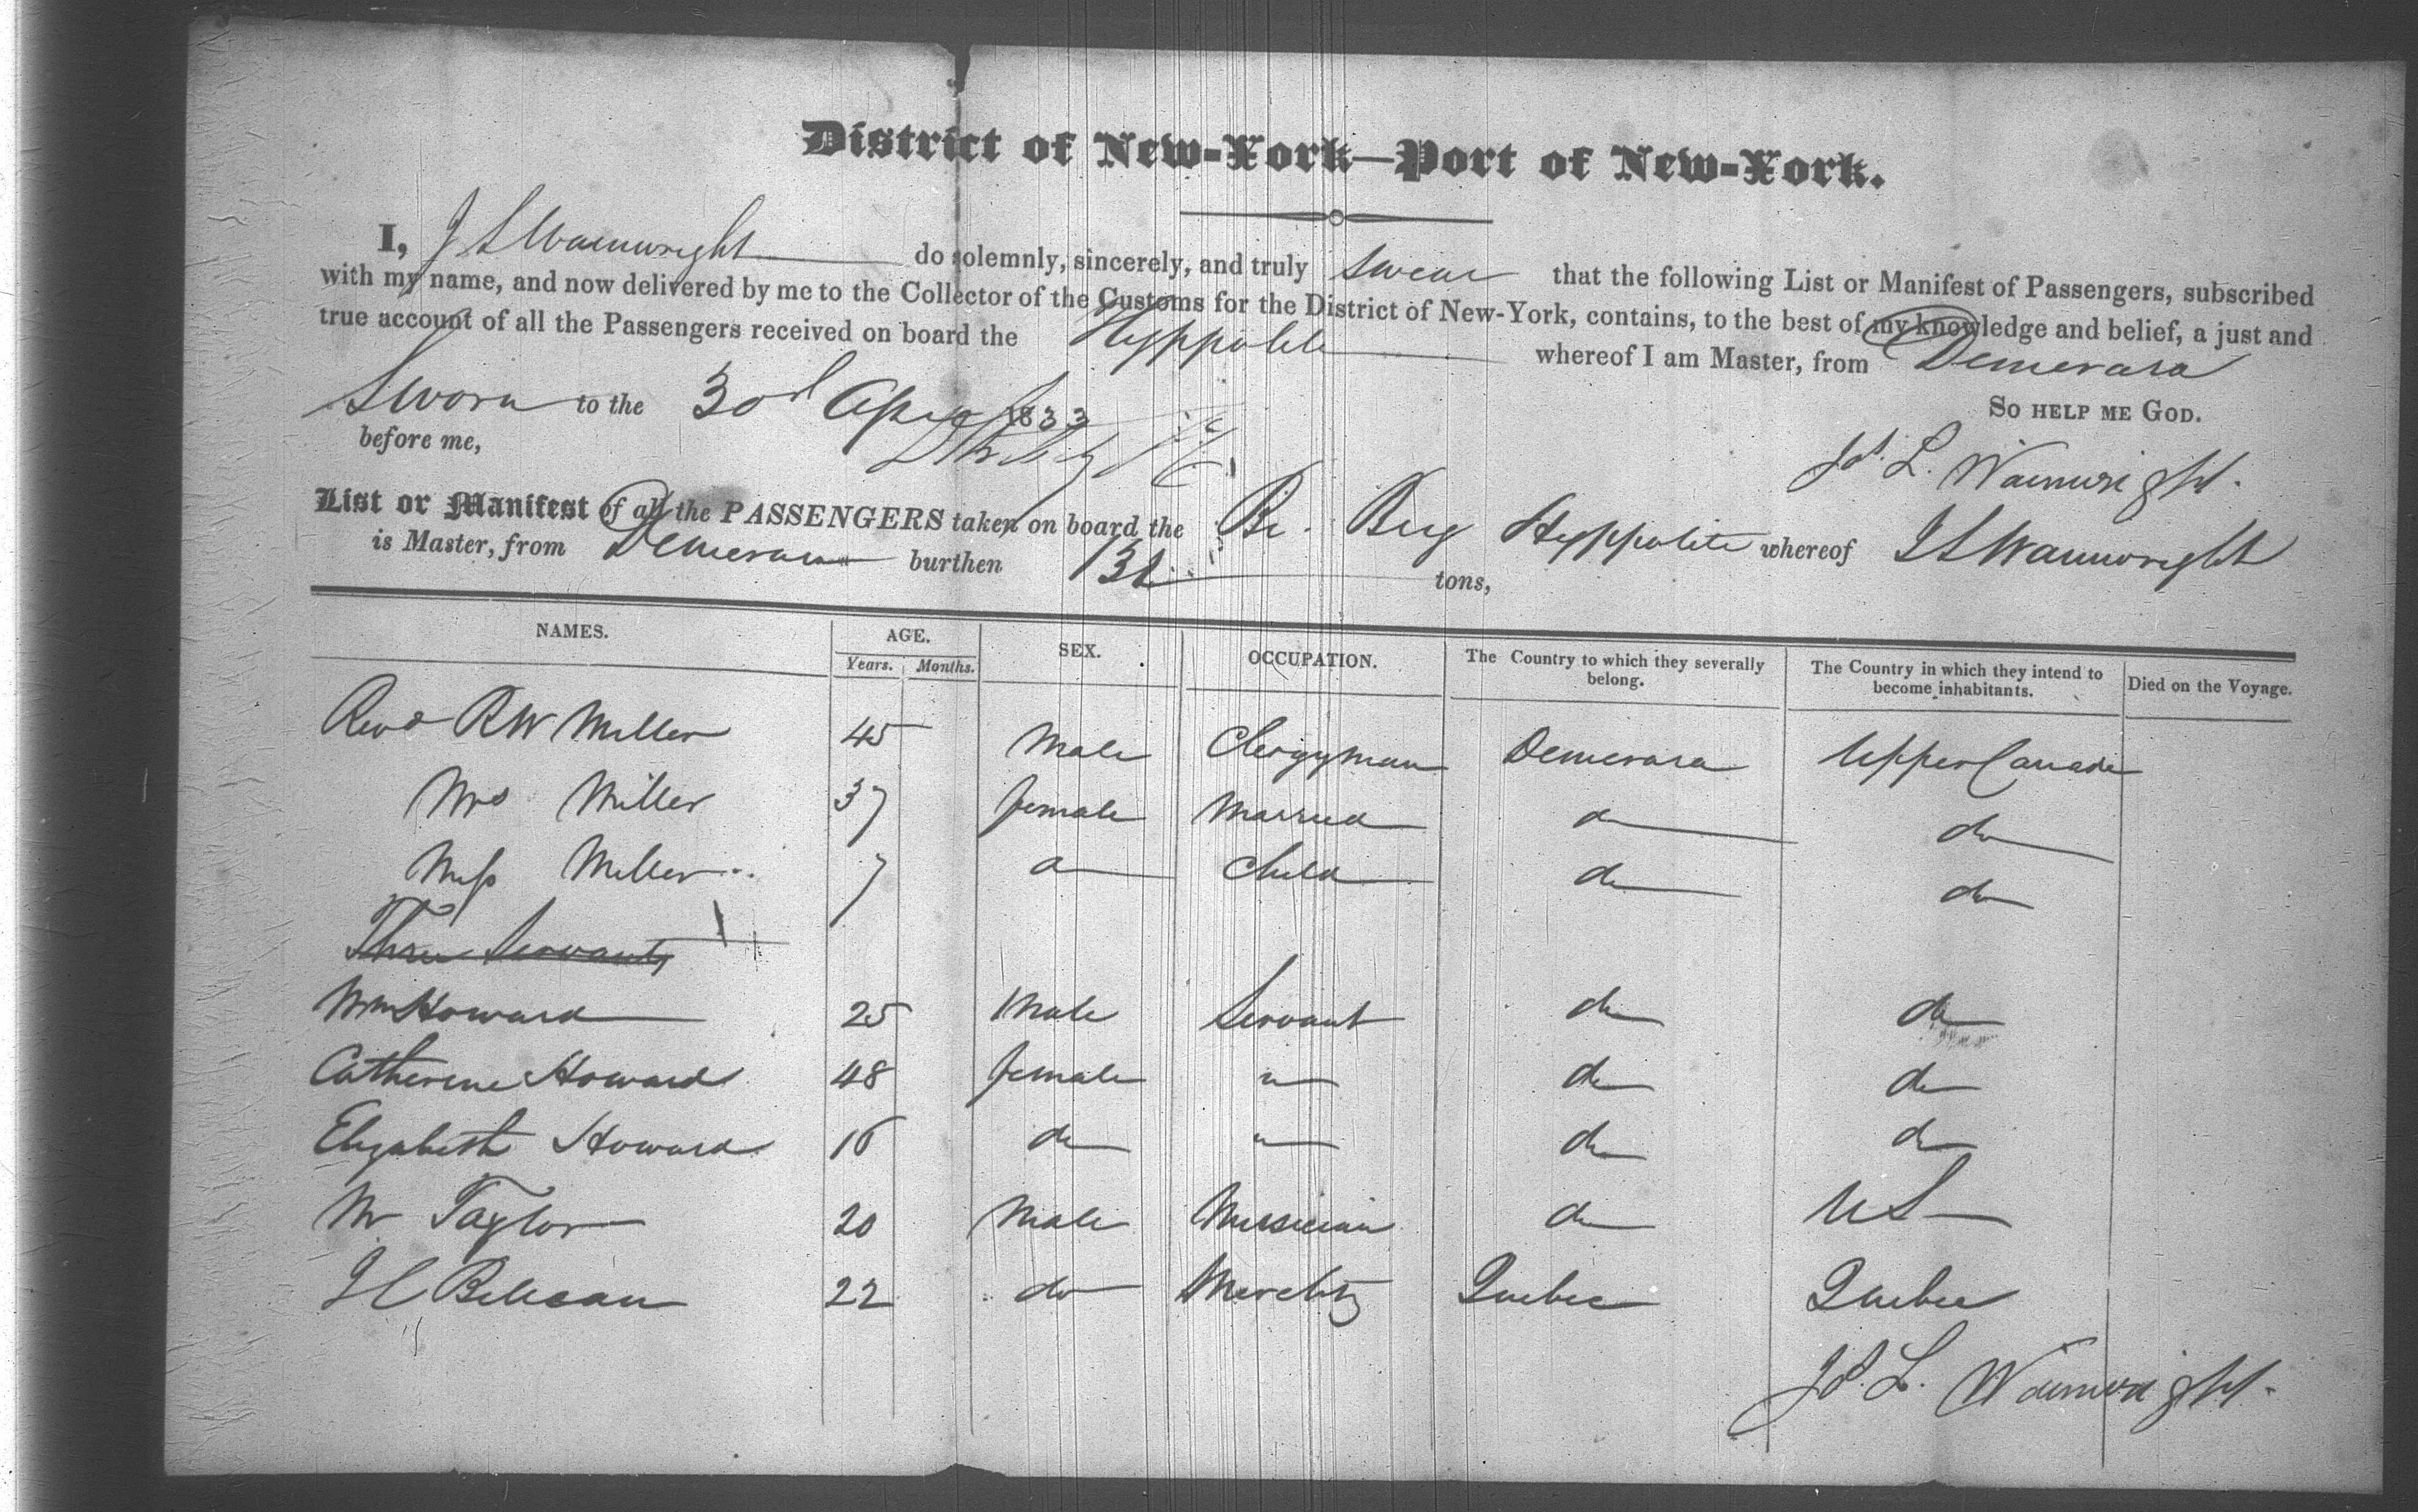 District of New-York—Port of New-York.
I, J L Wainwright do solemnly, sincerely, and truly swear that the following List or Manifest of Passengers, subscribed
with my name, and now delivered by me to the Collector of the Customs for the District of New-York, contains, to the best of my knowledge and belief, a just and
true account of all the Passengers received on board the Hyppolite whereof I am Master, from Demerara
Sworn to the 30 April 1833 So HELP ME GOD.
before me,
Js. L. Wainwright.
List or Manifest of all the PASSENGERS taken on board the Br. Brig Hyppolite whereof J L Wainwright
is Master, from Demerara burthen tons,
NAMES. AGE. SEX. OCCUPATION. The Country to which they severally belong. The Country in which they intend to become inhabitants. Died on the Voyage.
Years. Months.
Revd RW Miller 45 Male Clergyman Demerara Upper Canada
Mrs Miller 37 female Married do do
Miss Miller 7 do Child do do
Three Servants
Wm Howard 25 Male Servant do do
Catherine Howard 48 female " do do
Elizabeth Howard 16 do " do do
Mr Taylor 20 Male Musician do US
J C 22 do Quebec Quebec
Js. L. Wainwright.